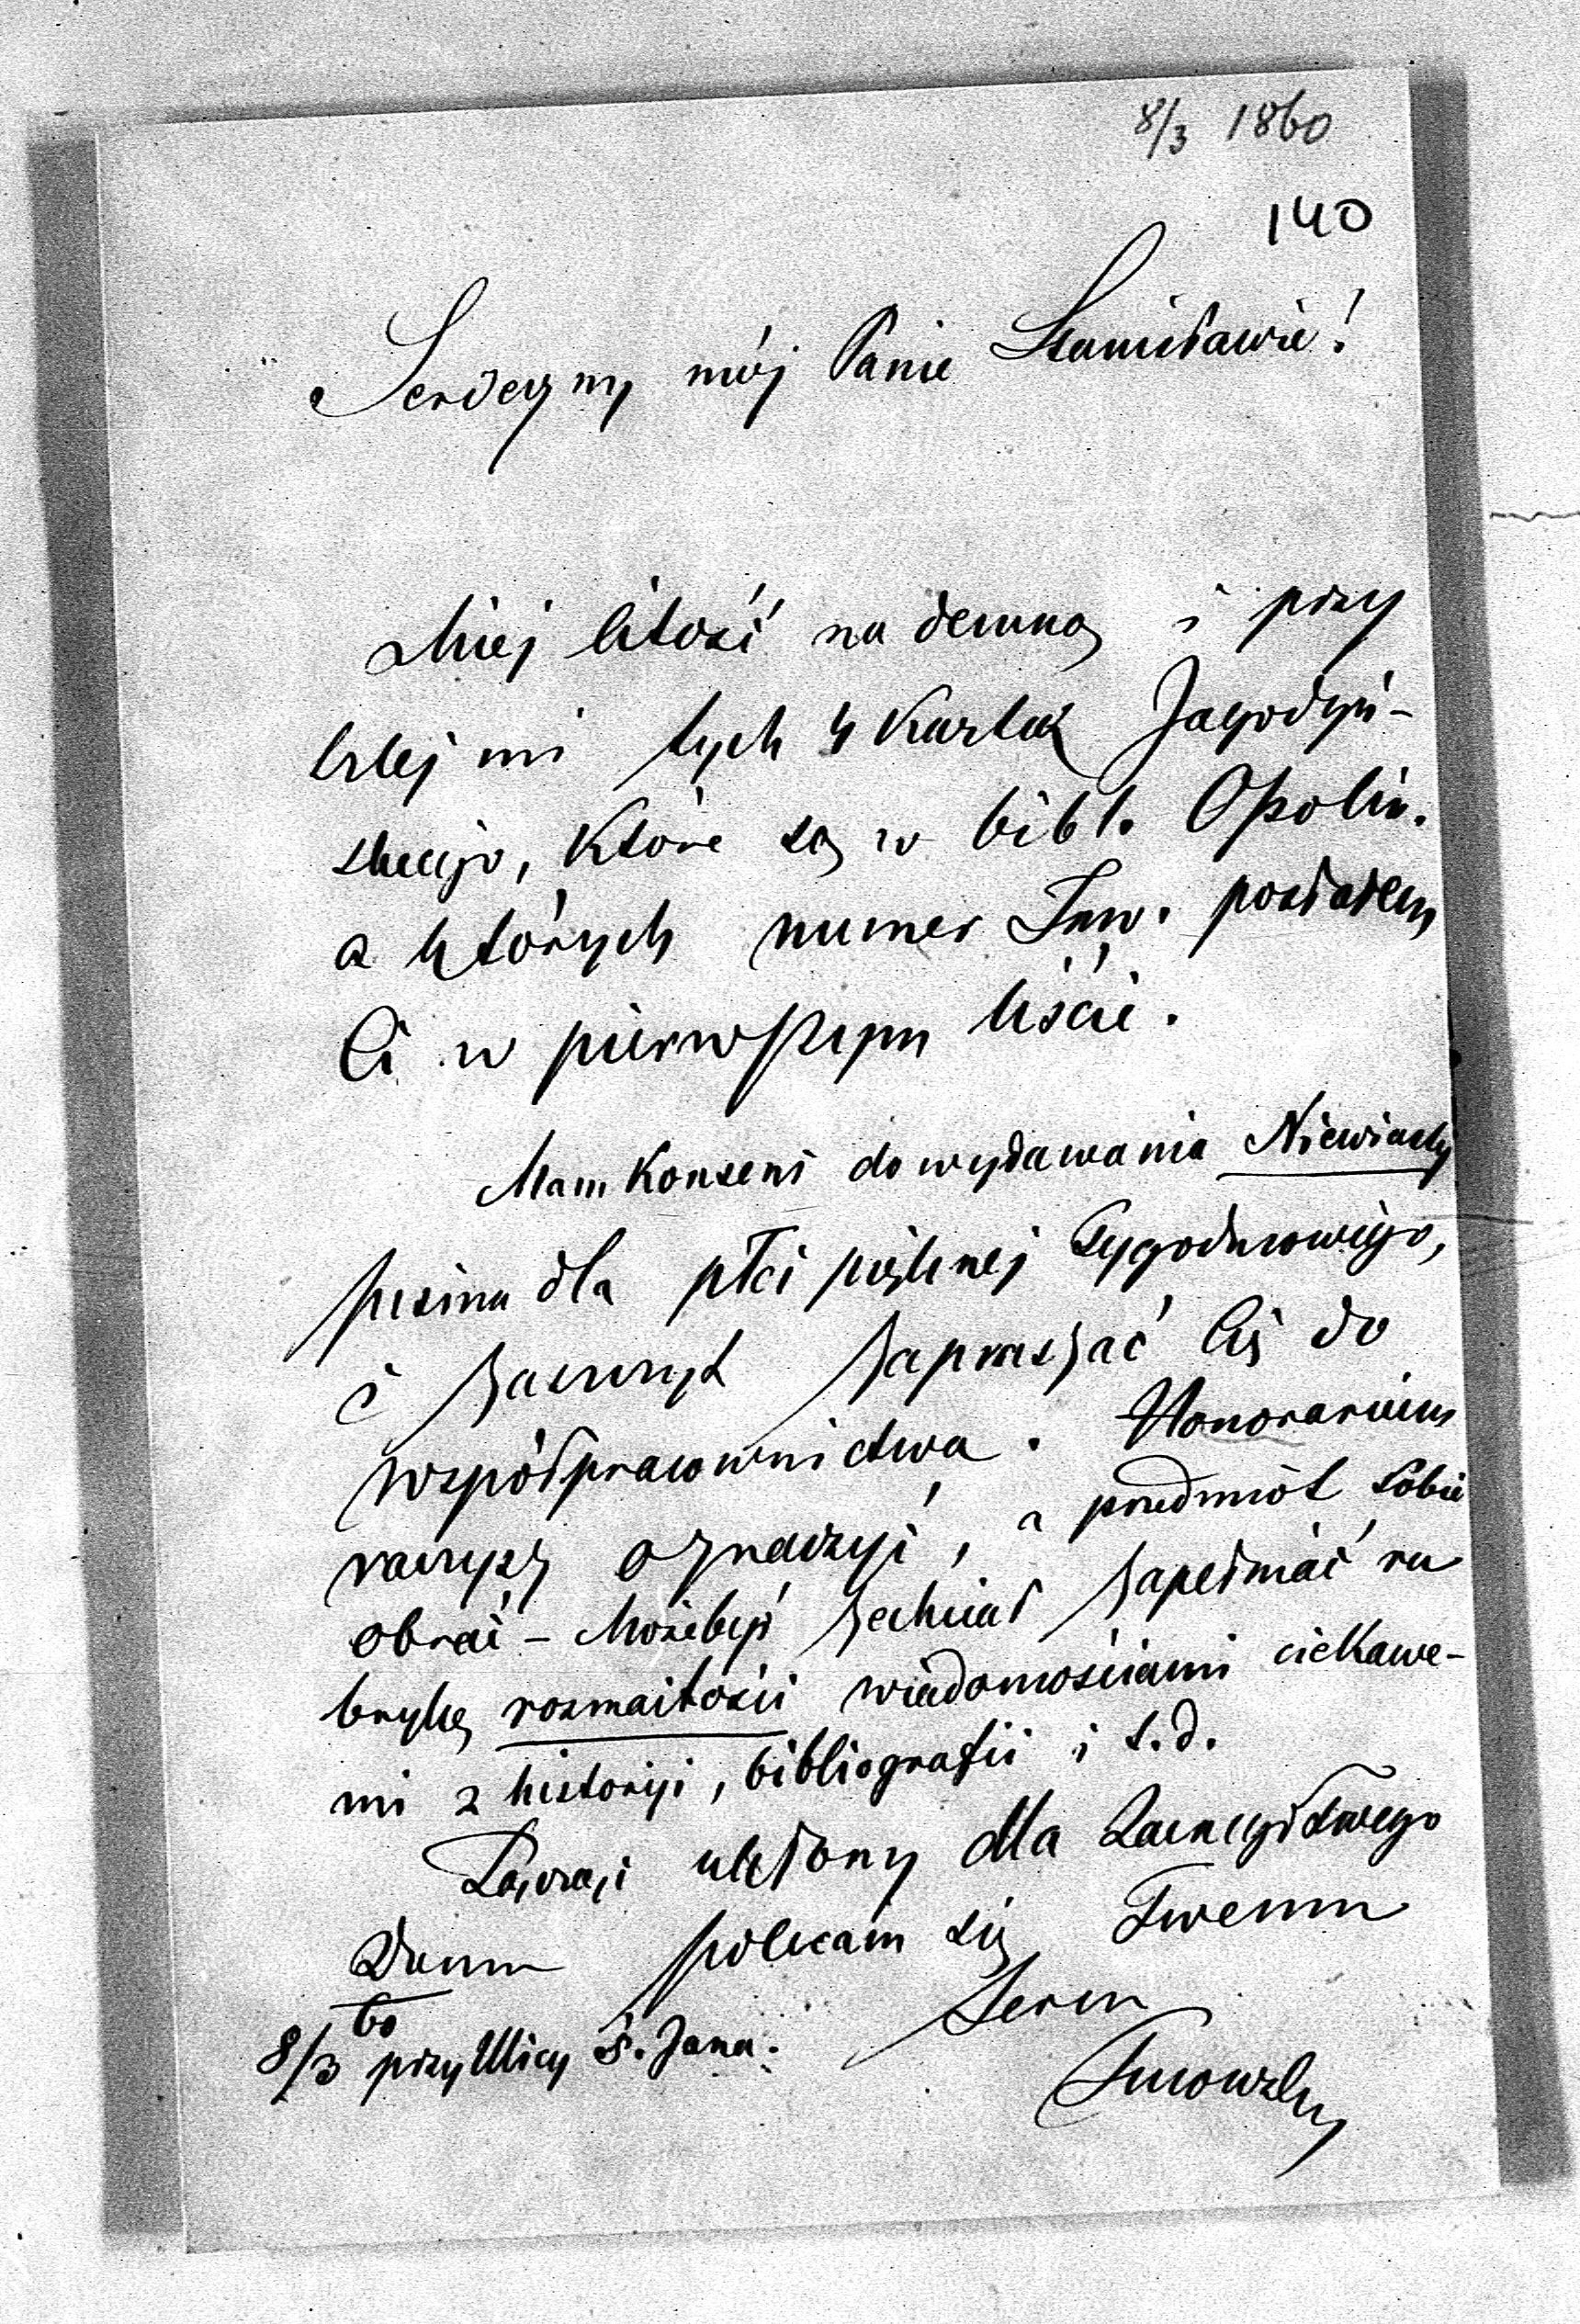 8/3 1860
140
Serdeczny mój Panie Stanisławie!
Miej litość nademną i przy
szlej mi tych 4 kartek Jagodyń-
skiego, które są w bibl. Ossolin.
a których numer Inw. posłałem
Ci w pierwszym liście.
Mam konsens do wydawania Niewiasty
pisma dla płci pięknej tygodniowego,
i zaszczyt zapraszać Cię do
współpracownictwa. Honorarium
raczysz oznaczyć, a przedmiot sobie
obrać - Możebyś zechciał zapełniać ru
brykę rozmaitości wiadomościami ciekawe-
mi z historyi, bibliografii i t.d.
Łączę ukłony dla Zacnego Twego
Domu polecam się Twemu
Sercu
8/3 60 przy Ulicy Ś. Jana.